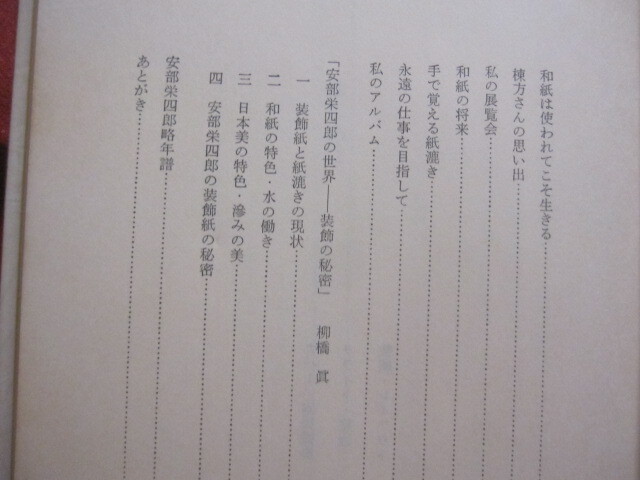 和紙は使われてこそ生きる
棟方さんの思い出
私の展覧会
和紙の将来
手で覚える紙漉き
永遠の仕事を目指して
私のアルバム
「安部栄四郎の世界――装飾の秘密」 柳橋 眞
一 装飾紙と紙漉きの現状
二 和紙の特色・水の働き
三 日本美の特色・滲みの美
四 安部栄四郎の装飾紙の秘密
安部栄四郎略年譜
あとがき